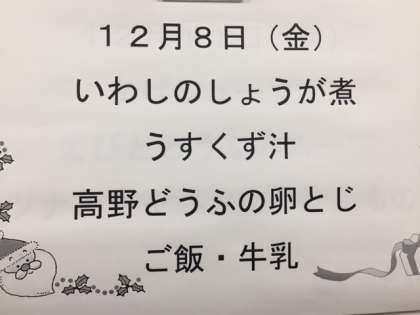 １２月８日（金）
いわしのしょうが煮
うすくず汁
高野どうふの卵とじ
ご飯・牛乳